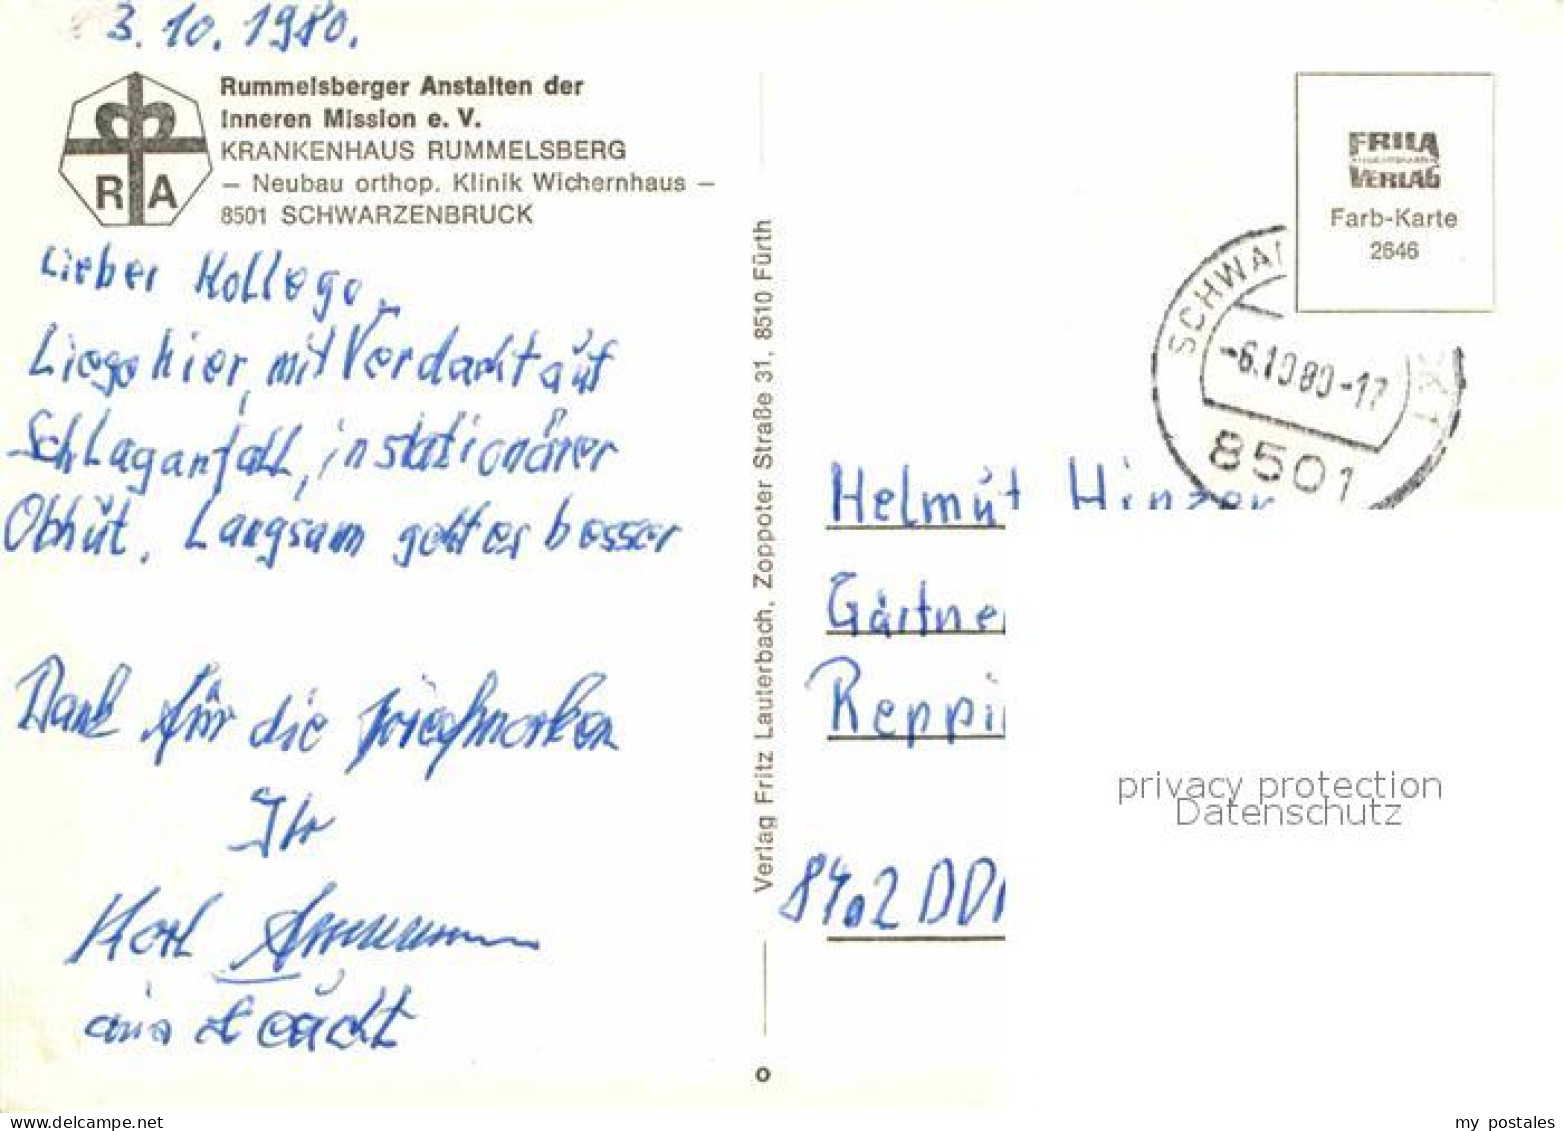 3. 10. 1980.
Rummelsberger Anstalten der
Inneren Mission e. V.
KRANKENHAUS RUMMELSBERG
– Neubau orthop. Klinik Wichernhaus –
8501 SCHWARZENBRUCK
R A
Lieber Kollege,
Liege hier, mit Verdacht auf
Schlaganfall, in stationärer
Obhut. Langsam geht es besser
Dank für die Briefmarken
Ihr
Karl
aus
Verlag Fritz Lauterbach, Zoppoter Straße 31, 8510 Fürth
FRILA
VERLAG
Farb-Karte
2646
SCHWA
-6.10.80-17
8501
Helmut Hinzer
Gärtne
Reppi
8402 DD
privacy protection
Datenschutz
my postales